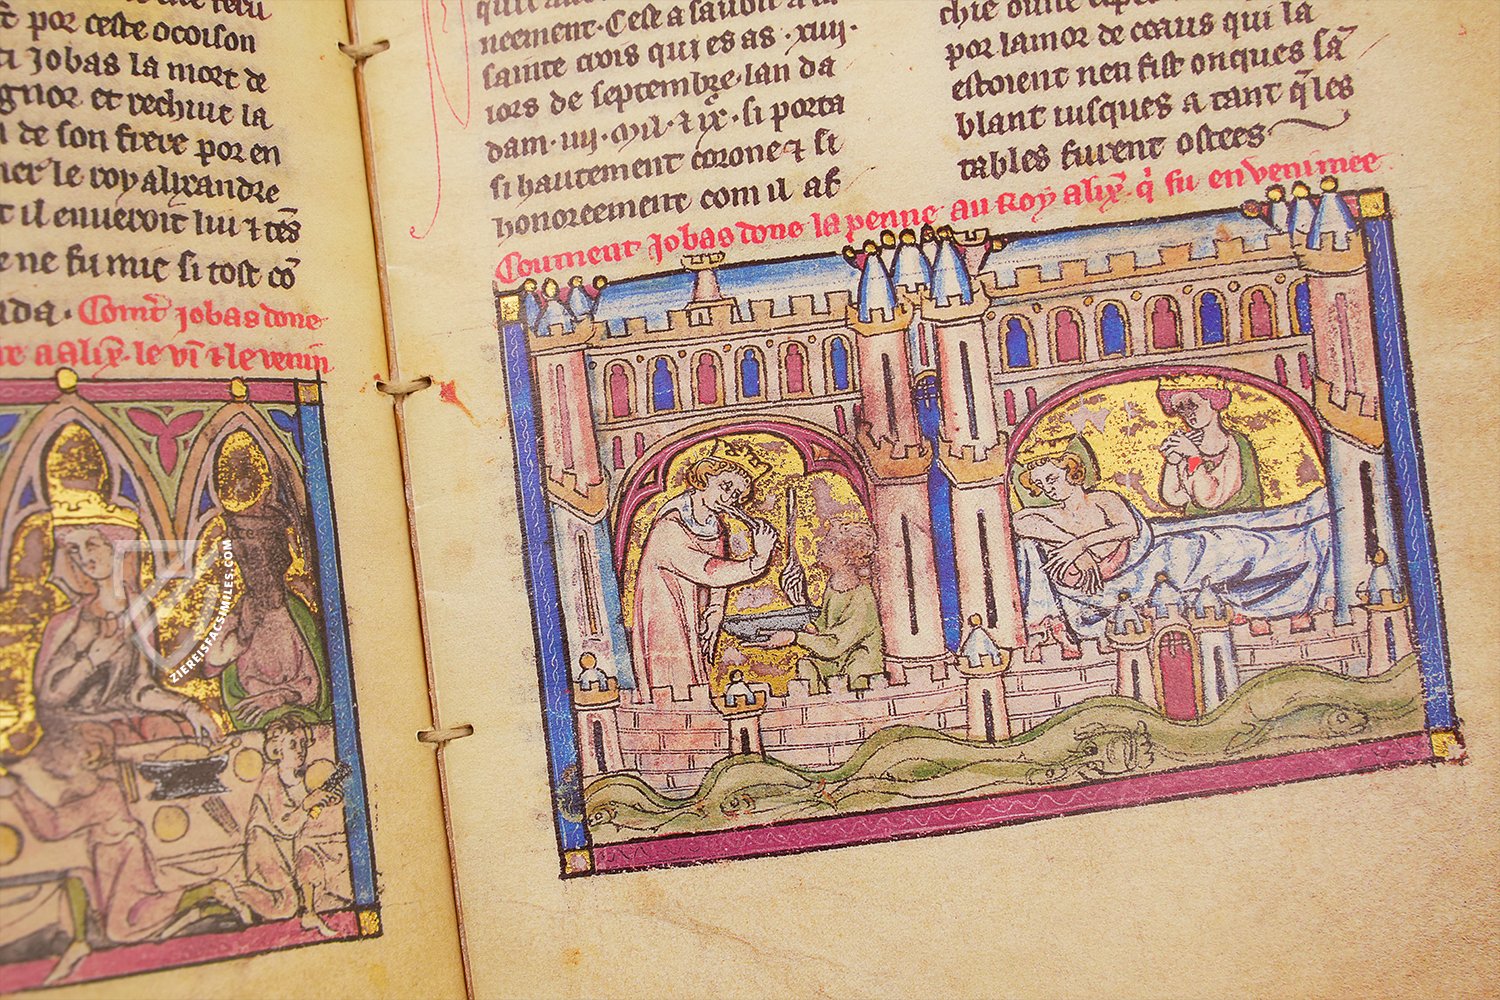 t por ceste ocoison
ti Jobas la mort de
gnor et rechiut la
de son frere por en
le roy alixandre
t il enveroit lui ⁊ ses
e ne fu mie si tost cō
ada. Comt̄ jobas done
alix̄. le vī ⁊ le venin
neement. Cest a savoir a la
sainte crois qui es as .xiiii.
iors de septembre. lan da
dam .iiii. mil. ⁊ .ix. si porta
si hautement corone ⁊ si
honoreement com il af
por lamor de ceaus qui la
estoient nen fist onques sā
blant iusques a tant q̄ les
tables furent ostees
Coument Jobas done la penne au Roy alix̄. q̄ fu envenimee
ZIEREISFACSIMILES.COM